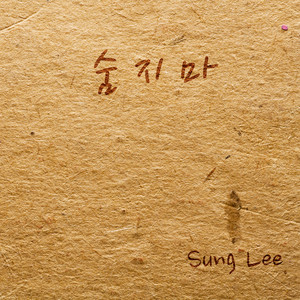 숨지마
Sung Lee